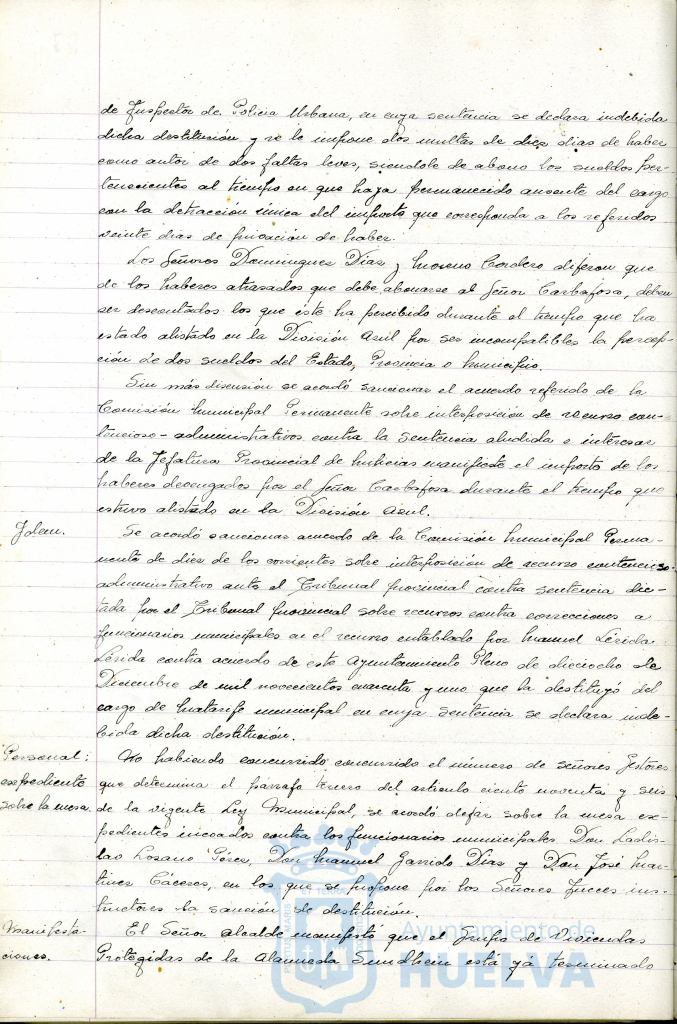 de Inspector de Policia Urbana, en cuya sentencia se declara indebida
dicha destitución y se le impone dos multas de diez dias de haber
como autor de dos faltas leves, siendole de abono los sueldos per-
tenecientes al tiempo en que haya permanecido ausente del cargo
con la detracción única del importe que corresponda a los referidos
veinte dias de privación de haber.
Los Señores Dominguez Diaz y Moreno Cordero dijeron que
de los haberes atrasados que debe abonarse al Señor Carbajosa, deben
ser descontados los que éste ha percibido durante el tiempo que ha
estado alistado en la División Azul por ser incompatibles la percep-
ción de dos sueldos del Estado, Provincia o Municipio.
Sin más discusión se acordó sancionar el acuerdo referido de la
Comisión Municipal Permanente sobre interposición de recurso con-
tencioso-administrativos contra la sentencia aludida e interesar
de la Jefatura Provincial de Milicias manifieste el importe de los
haberes devengados por el Señor Carbajosa durante el tiempo que
estuvo alistado en la División Azul.
Idem.
Se acordó sancionar acuerdo de la Comisión Municipal Perma-
nente de diez de los corrientes sobre interposición de recurso contencioso-
administrativo ante el Tribunal provincial contra sentencia dic-
tada por el Tribunal provincial sobre recursos contra correcciones a
funcionarios municipales en el recurso entablado por Manuel Lérida
Lérida contra acuerdo de este Ayuntamiento Pleno de dieciocho de
Diciembre de mil novecientos cuarenta y uno que la destituyó del
cargo de Matarife municipal en cuya sentencia se declara inde-
bida dicha destitución.
Personal:
expediente
sobre la mesa.
No habiendo concurrido concurrido el número de señores Gestores
que determina el párrafo tercero del articulo ciento noventa y seis
de la vigente Ley Municipal, se acordó dejar sobre la mesa ex-
pedientes incoados contra los funcionarios municipales Don Ladis-
lao Lozano Pérez, Don Manuel Garrido Diaz y Don José Mar-
tinez Cáceres, en los que se propone por los Señores Jueces ins-
tructores la sanción de destitución.
Manifesta-
ciones.
El Señor Alcalde manifestó que el Grupo de Viviendas
Protegidas de la Alameda Sundheim está yá terminado
Ayuntamiento de
HUELVA